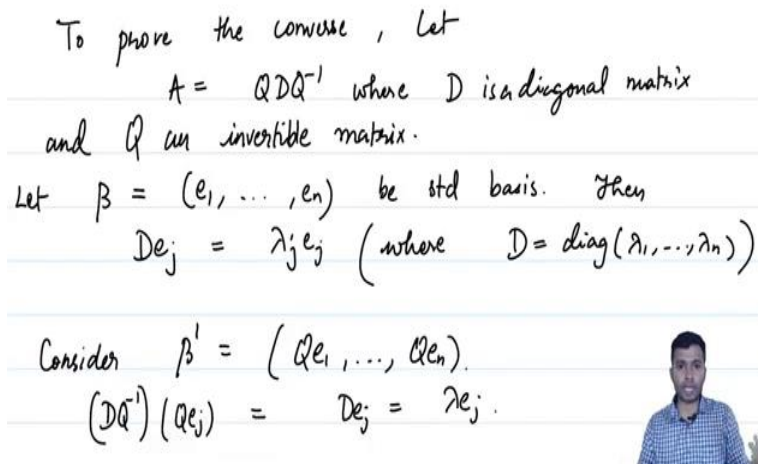 To prove the converse, Let
A = QDQ⁻¹ where D is a diagonal matrix
and Q an invertible matrix.
Let β = (e₁, ..., eₙ) be std basis. Then
Deⱼ = λⱼeⱼ (where D = diag(λ₁,...,λₙ))
Consider β' = (Qe₁,..., Qeₙ).
(DQ⁻¹)(Qeⱼ) = Deⱼ = λeⱼ.